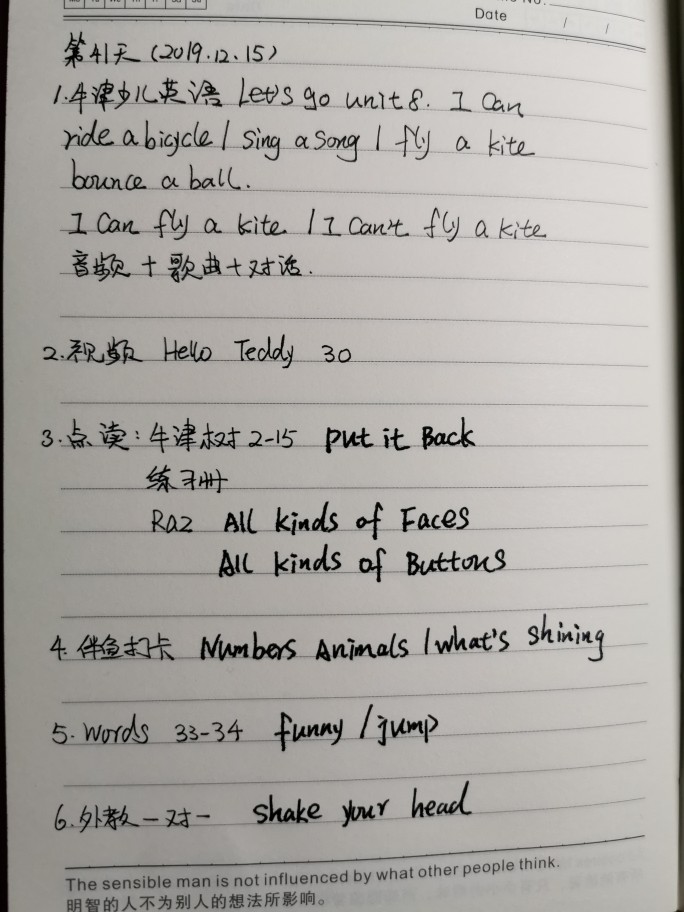 Date / /
第41天(2019.12.15)
1.牛津少儿英语 Let's go unit 8. I Can
ride a bicycle / sing a song / fly a kite
bounce a ball.
I Can fly a kite / I Can't fly a kite
音频+歌曲+对话.
2.视频 Hello Teddy 30
3.点读:牛津树2-15 Put it Back
练习册
Raz All kinds of Faces
All kinds of Buttons
4.伴鱼打卡 Numbers Animals / what's Shining
5.Words 33-34 funny / jump
6.外教一对一 shake your head
The sensible man is not influenced by what other people think.
明智的人不为别人的想法所影响。